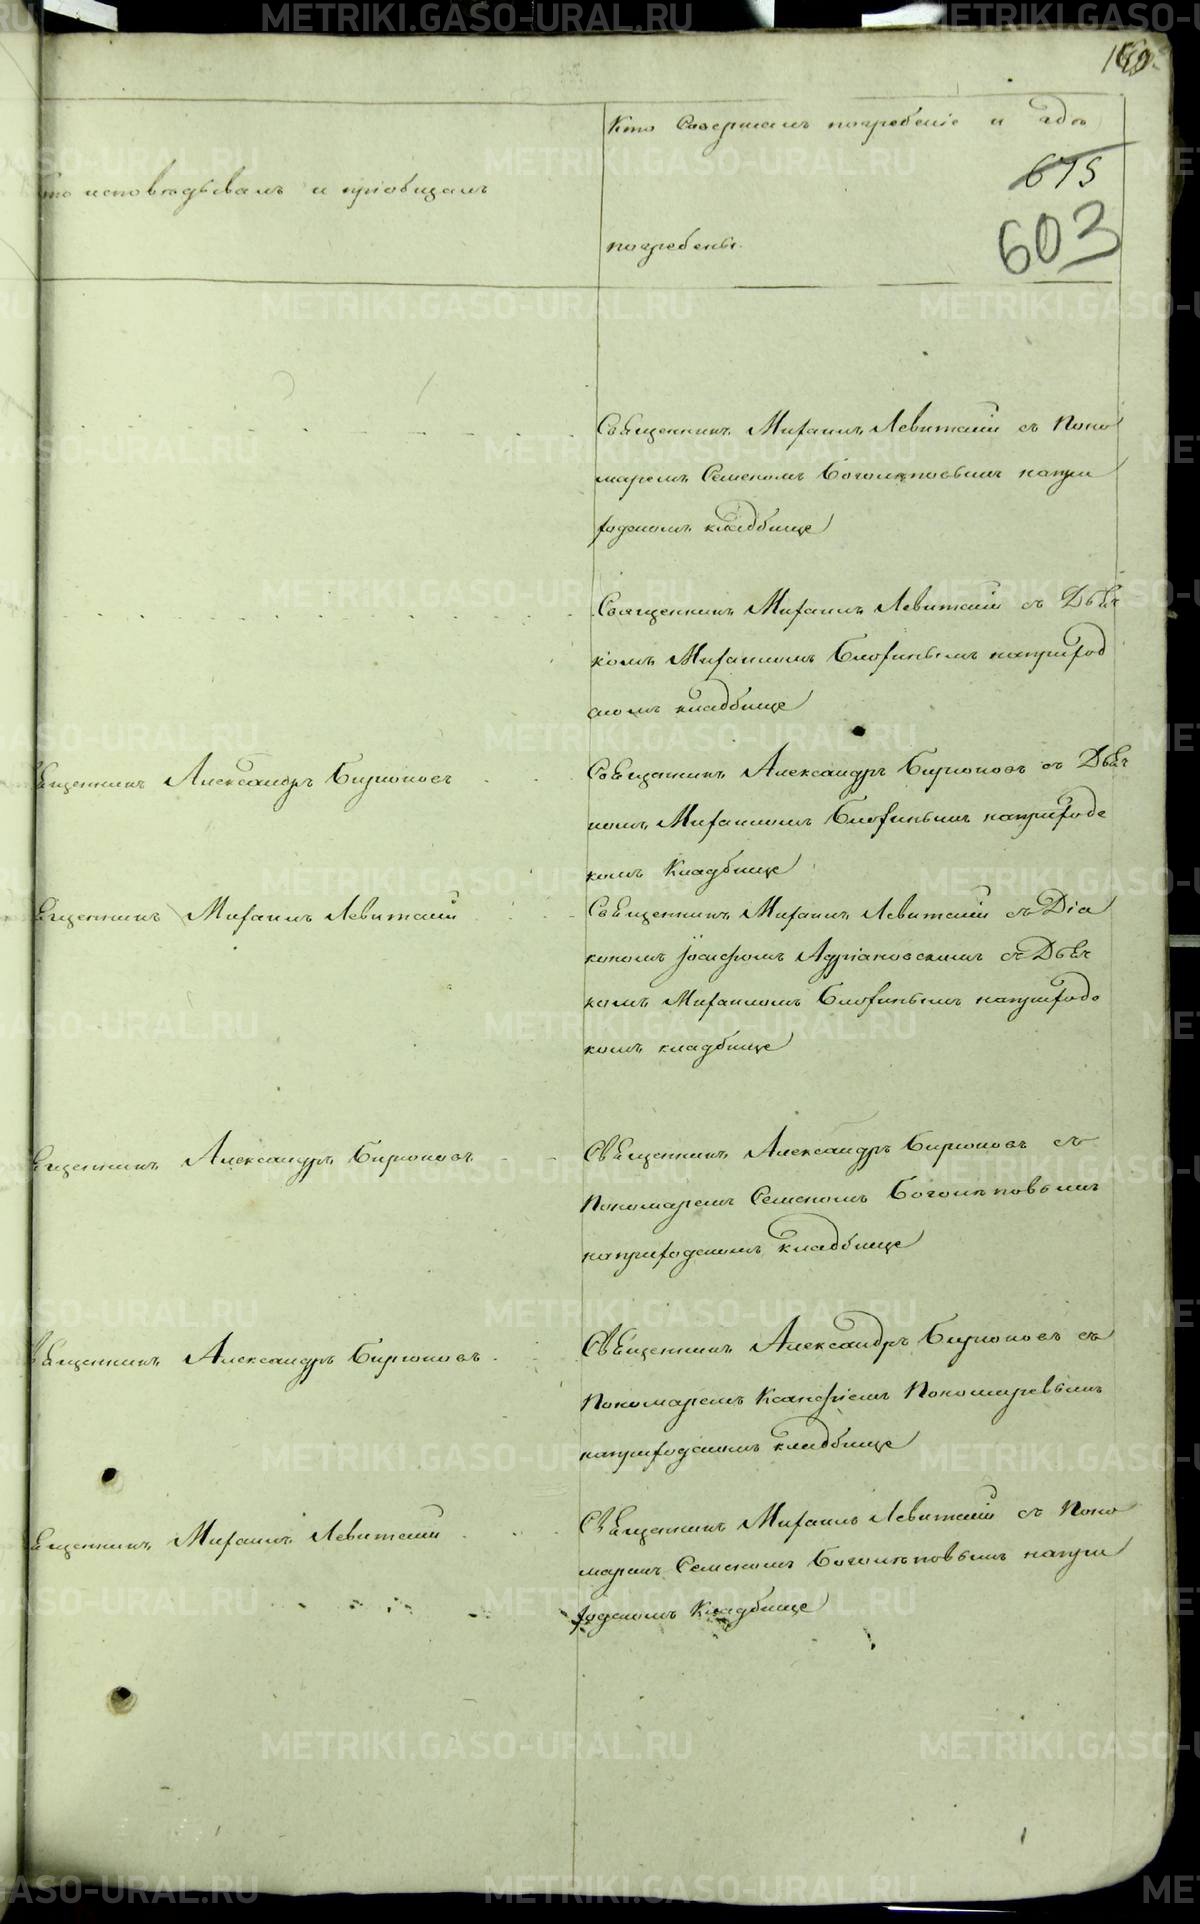 Кто Совершалъ погребенiе и гдѣ
675
то исповѣдывалъ и прiобщалъ
603
погребены
Священникъ Михаилъ Левитскiй съ Поно
маремъ Семеномъ Боголѣповымъ напри
ходскомъ кладбище
Священникъ Михаилъ Левитскiй съ Дьяч
комъ Михаиломъ Блохинымъ наприход
скомъ кладбище
вященникъ Александръ Бирюковъ
Священникъ Александръ Бирюковъ съ Дьяч
комъ Михаиломъ Блохинымъ наприходс
комъ Кладбище
вященникъ Михаилъ Левитскiй
Священникъ Михаилъ Левитскiй съ Дiа
кономъ Адрiановскимъ съ Дьяч
комъ Михаиломъ Блохинымъ наприходс
комъ кладбище
вященникъ Александръ Бирюковъ
Священникъ Александръ Бирюковъ съ
Пономаремъ Семеномъ Боголѣповымъ
наприходскомъ кладбище
вященникъ Александръ Бирюковъ
Священникъ Александръ Бирюковъ съ
Пономаремъ Пономаревымъ
наприходскомъ кладбище
вященникъ Михаилъ Левитскiй
Священникъ Михаилъ Левитскiй съ Поно
маремъ Семеномъ Боголѣповымъ напри
ходскомъ Кладбище
METRIKI.GASO-URAL.RU